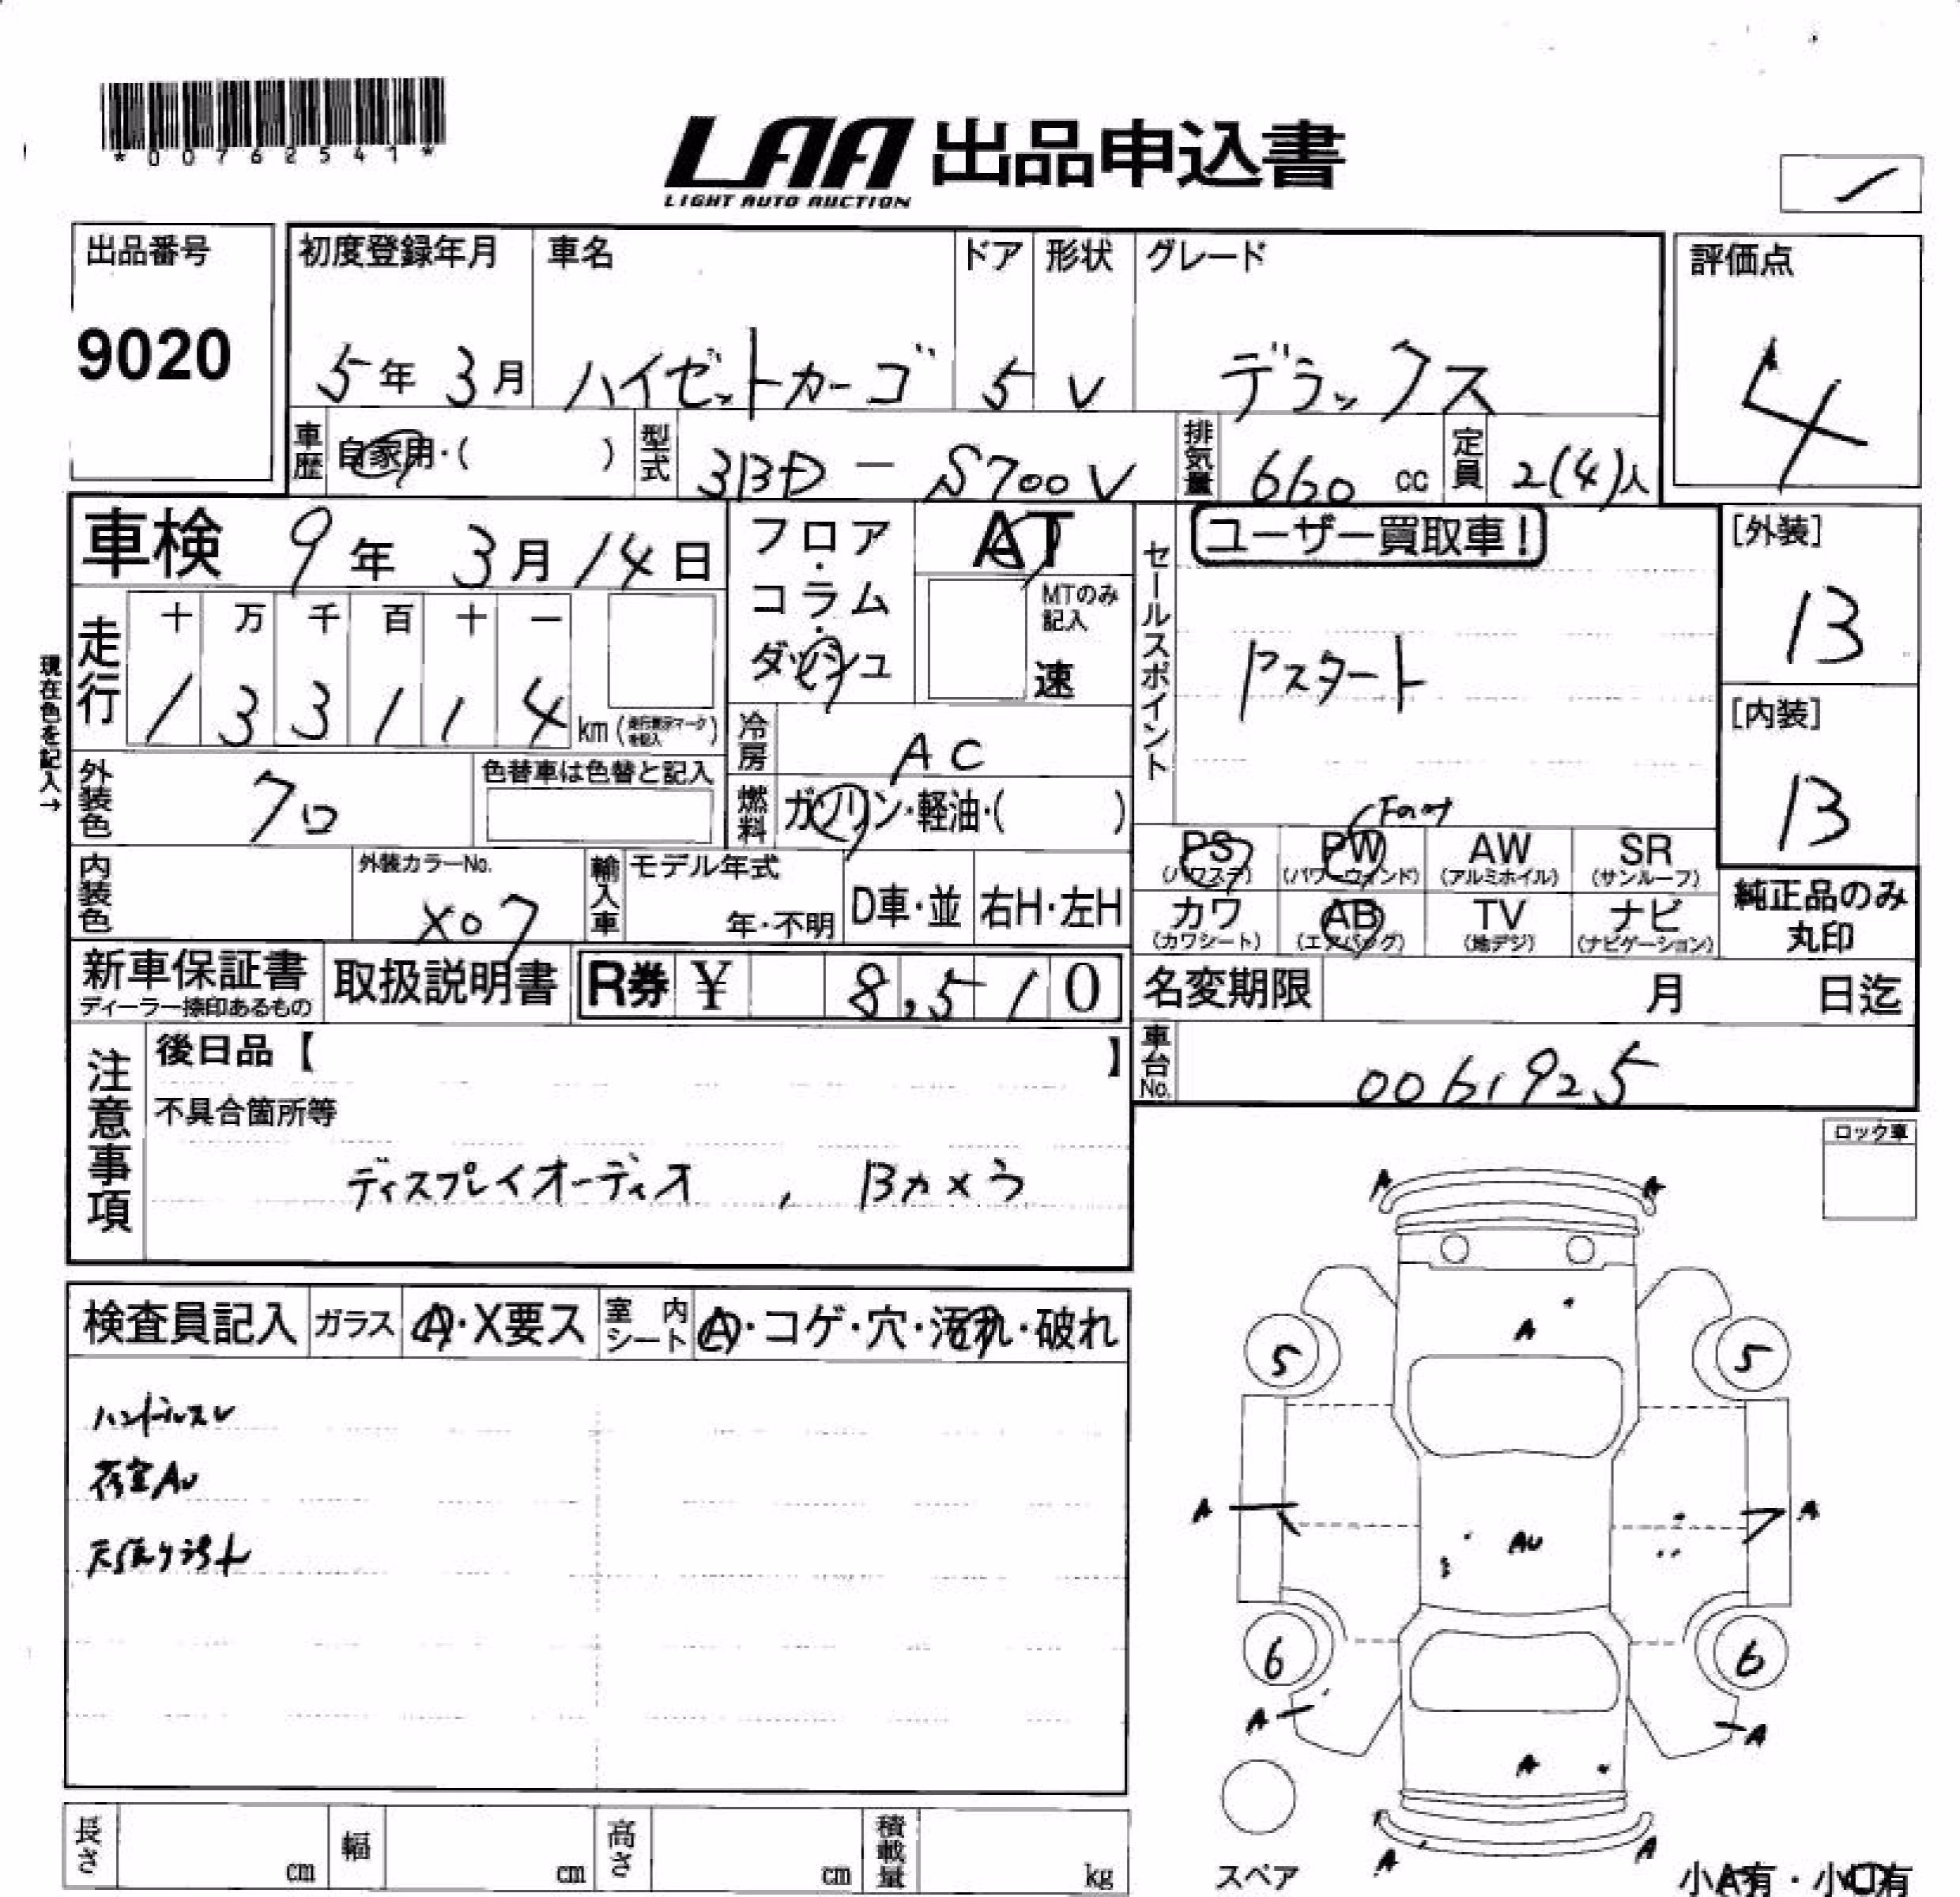 *00762541*
LAA 出品申込書
LIGHT AUTO AUCTION
出品番号
9020
初度登録年月
5年 3月
車名
ハイゼットカーゴ
ドア
5
形状
V
グレード
デラックス
評価点
4
車歴 自家用・( )
型式 3BD-S700V
排気量 660 cc
定員 2(4)人
車検 9年 3月 14日
フロア・コラム・ダッシュ
AT
MTのみ記入
速
セールスポイント
ユーザー買取車!
Pスタート
[外装]
13
[内装]
13
現在色を記入→
走行
十 万 千 百 十 一
1 3 3 1 1 4 km (走行表示マークを記入)
冷房 AC
外装色 クロ
色替車は色替と記入
燃料 ガソリン・軽油・( )
内装色
外装カラーNo.
X07
輸入車 モデル年式
年・不明
D車・並
右H・左H
Front
PS (パワステ)
PW (パワーウィンド)
AW (アルミホイル)
SR (サンルーフ)
カワ (カワシート)
AB (エアバッグ)
TV (地デジ)
ナビ (ナビゲーション)
純正品のみ
丸印
新車保証書
ディーラー捺印あるもの
取扱説明書
R券 ¥ 8,510
名変期限 月 日迄
車台No. 0061925
注意事項
後日品【 】
不具合箇所等
ディスプレイオーディオ , Bカメラ
ロック車
検査員記入 ガラス A・X要ス 室内シート A・コゲ・穴・汚れ・破れ
ハンドルスレ
荷室AU
天張り汚れ
A A
A
5 5
A A
AU
6 6
A A
A
A A
スペア
小A有・小U有
長さ cm
幅 cm
高さ cm
積載量 kg